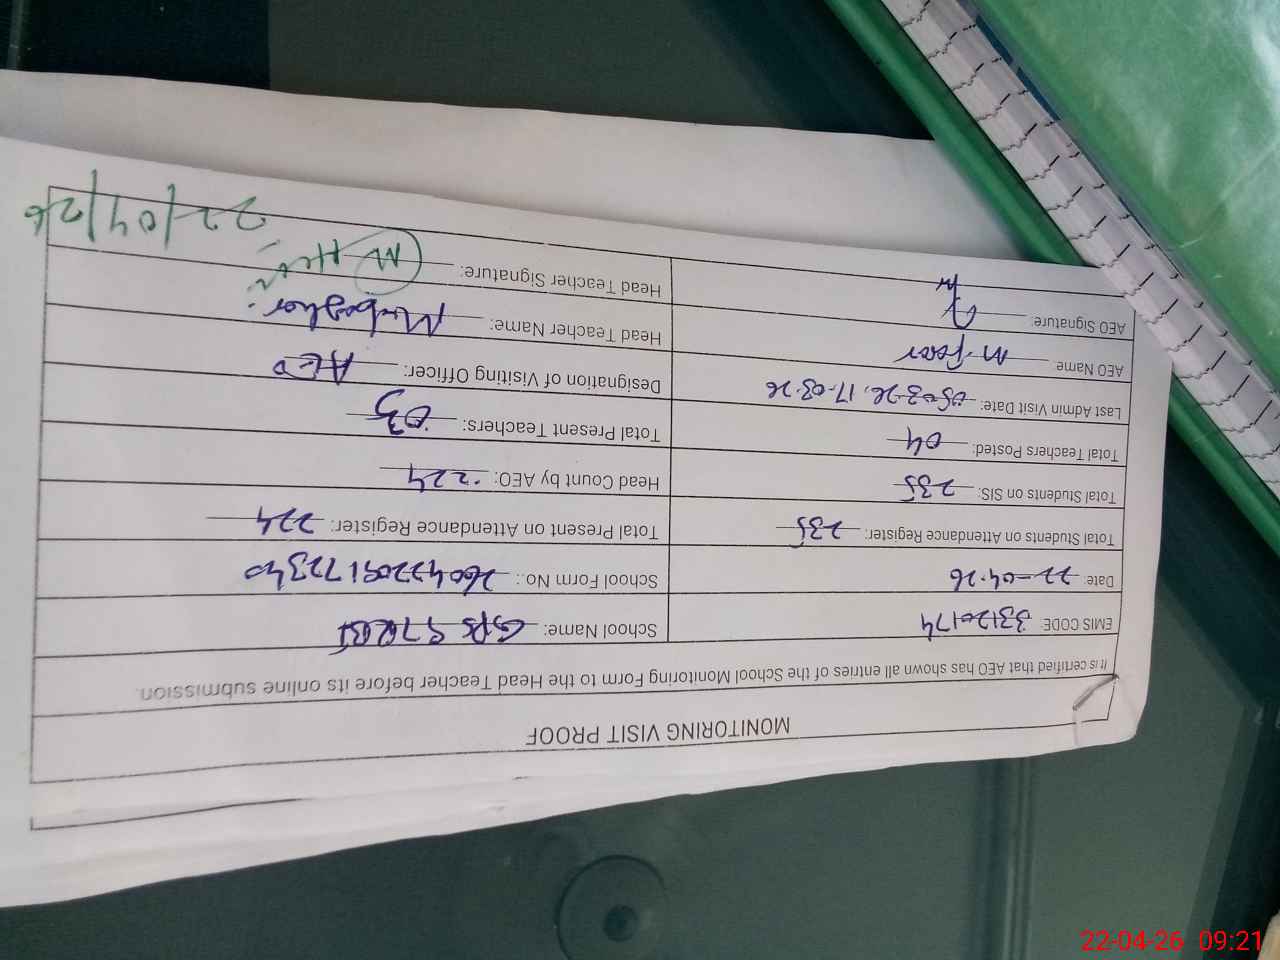 MONITORING VISIT PROOF
It is certified that AEO has shown all entries of the School Monitoring Form to the Head Teacher before its online submission.
EMIS CODE: 33120174 School Name: GPS 57RB1
Date: 22-04-26 School Form No.: 26042209172340
Total Students on Attendance Register: 235 Total Present on Attendance Register: 224
Total Students on SIS: 235 Head Count by AEO: 224
Total Teachers Posted: 04 Total Present Teachers: 03
Last Admin Visit Date: 05-03-26, 17-03-26 Designation of Visiting Officer: AEO
AEO Name: Head Teacher Name: Mubashar
AEO Signature: Head Teacher Signature:
22/04/26
22-04-26 09:21